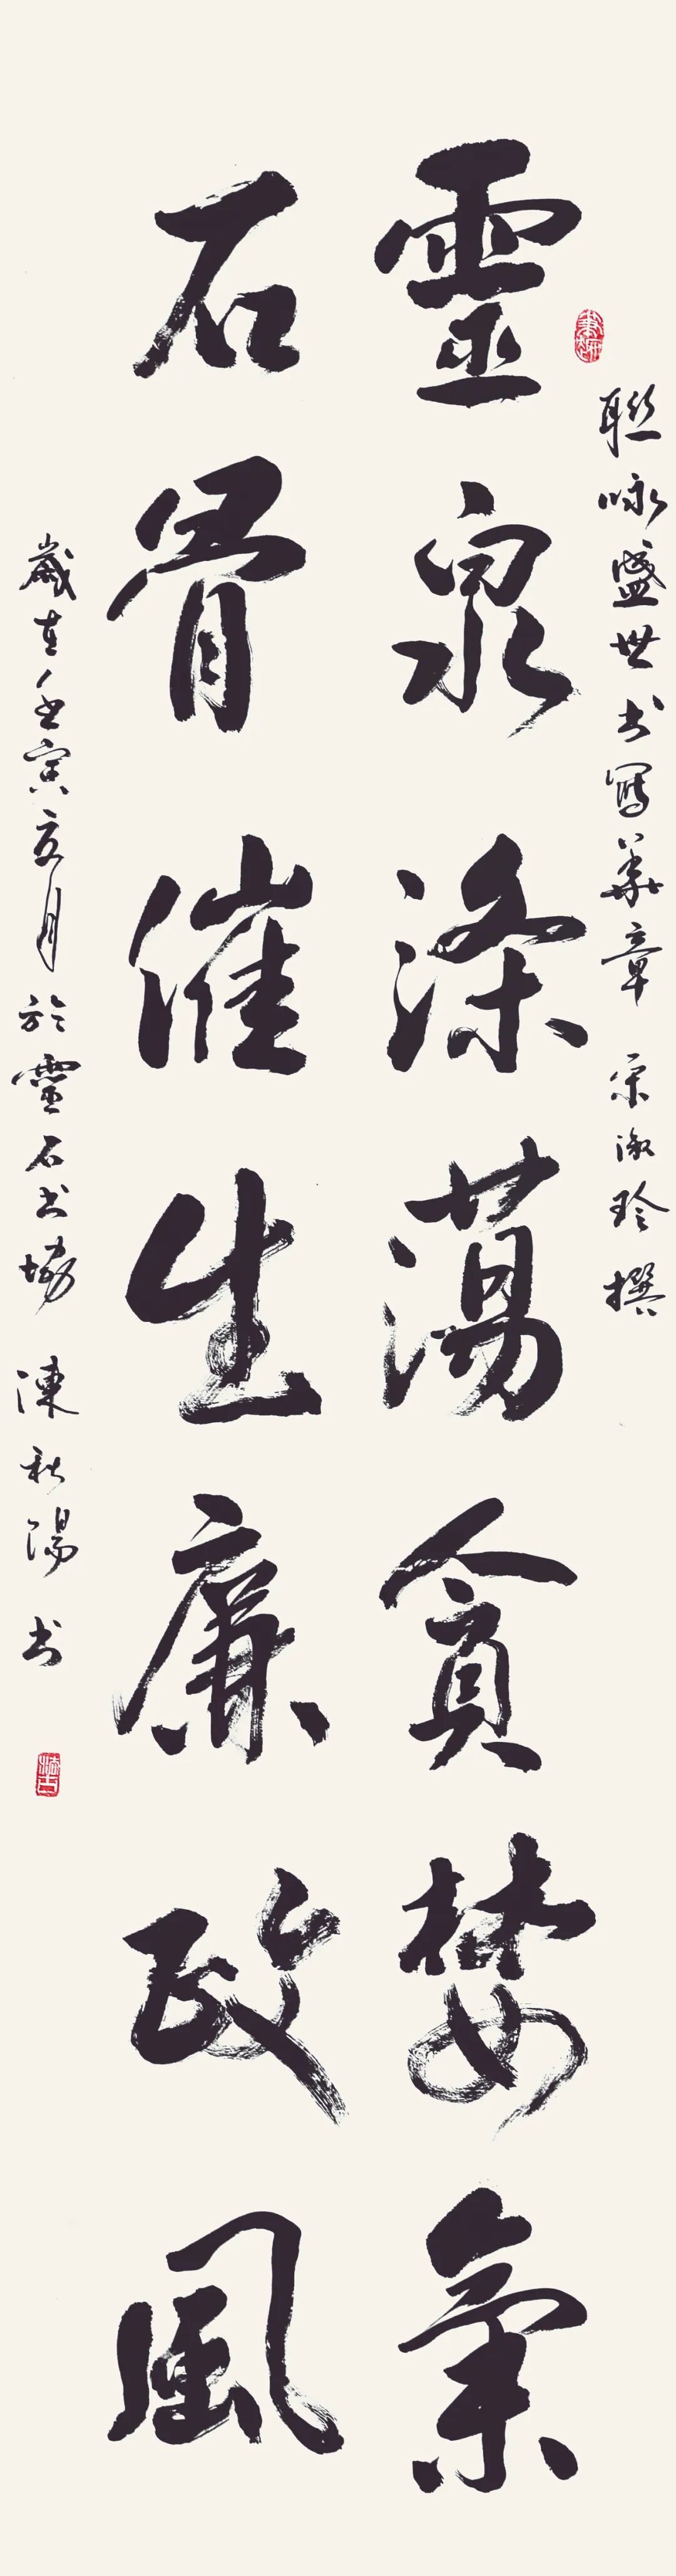 聯咏盛世书寫華章 宋淑玲撰
靈泉滌蕩貪婪氣
石骨催生廉政風
歲在壬寅亥月於靈石书協 陳秋陽书